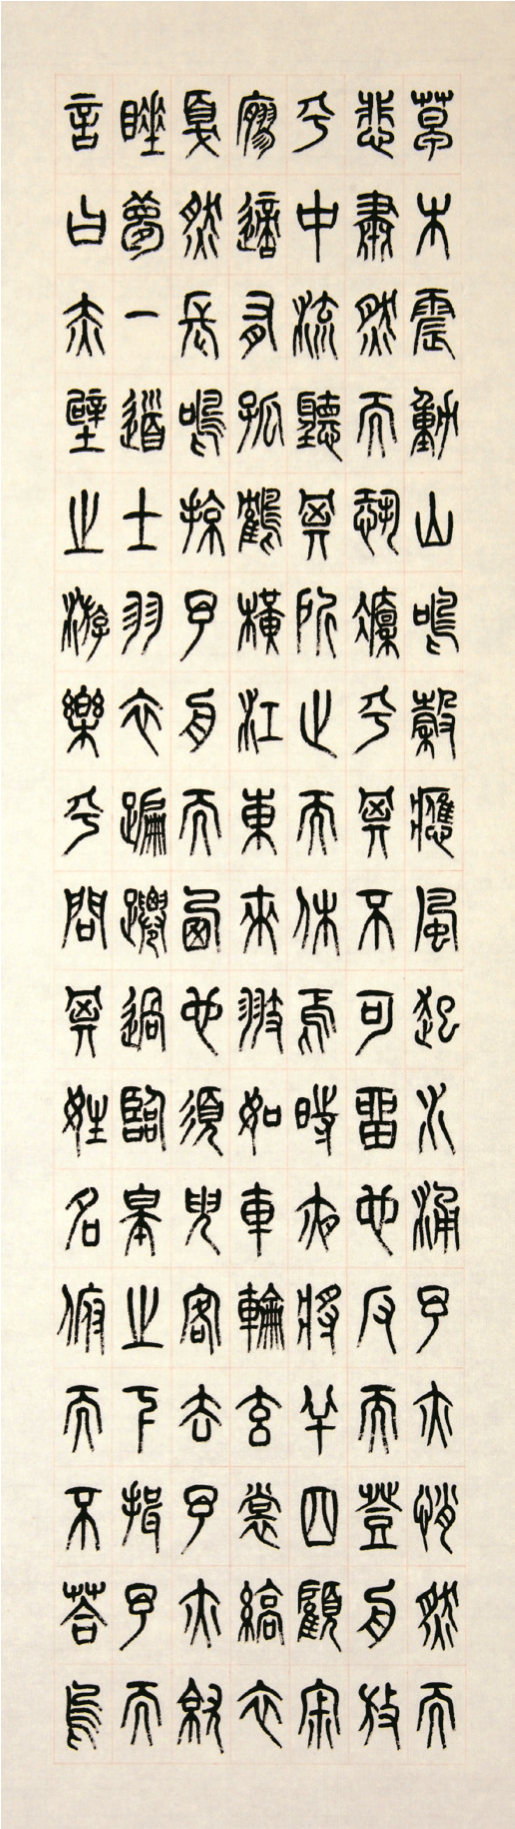 草木震動山鳴穀應風起水涌予亦悄然而
悲肅然而恐凜乎其不可留也反而登舟放
乎中流聽其所止而休焉時夜將半四顧寂
寥適有孤鶴橫江東來翅如車輪玄裳縞衣
戛然長鳴掠予舟而西也須臾客去予亦就
睡夢一道士羽衣蹁躚過臨皋之下揖予而
言曰赤壁之游樂乎問其姓名俯而不答烏